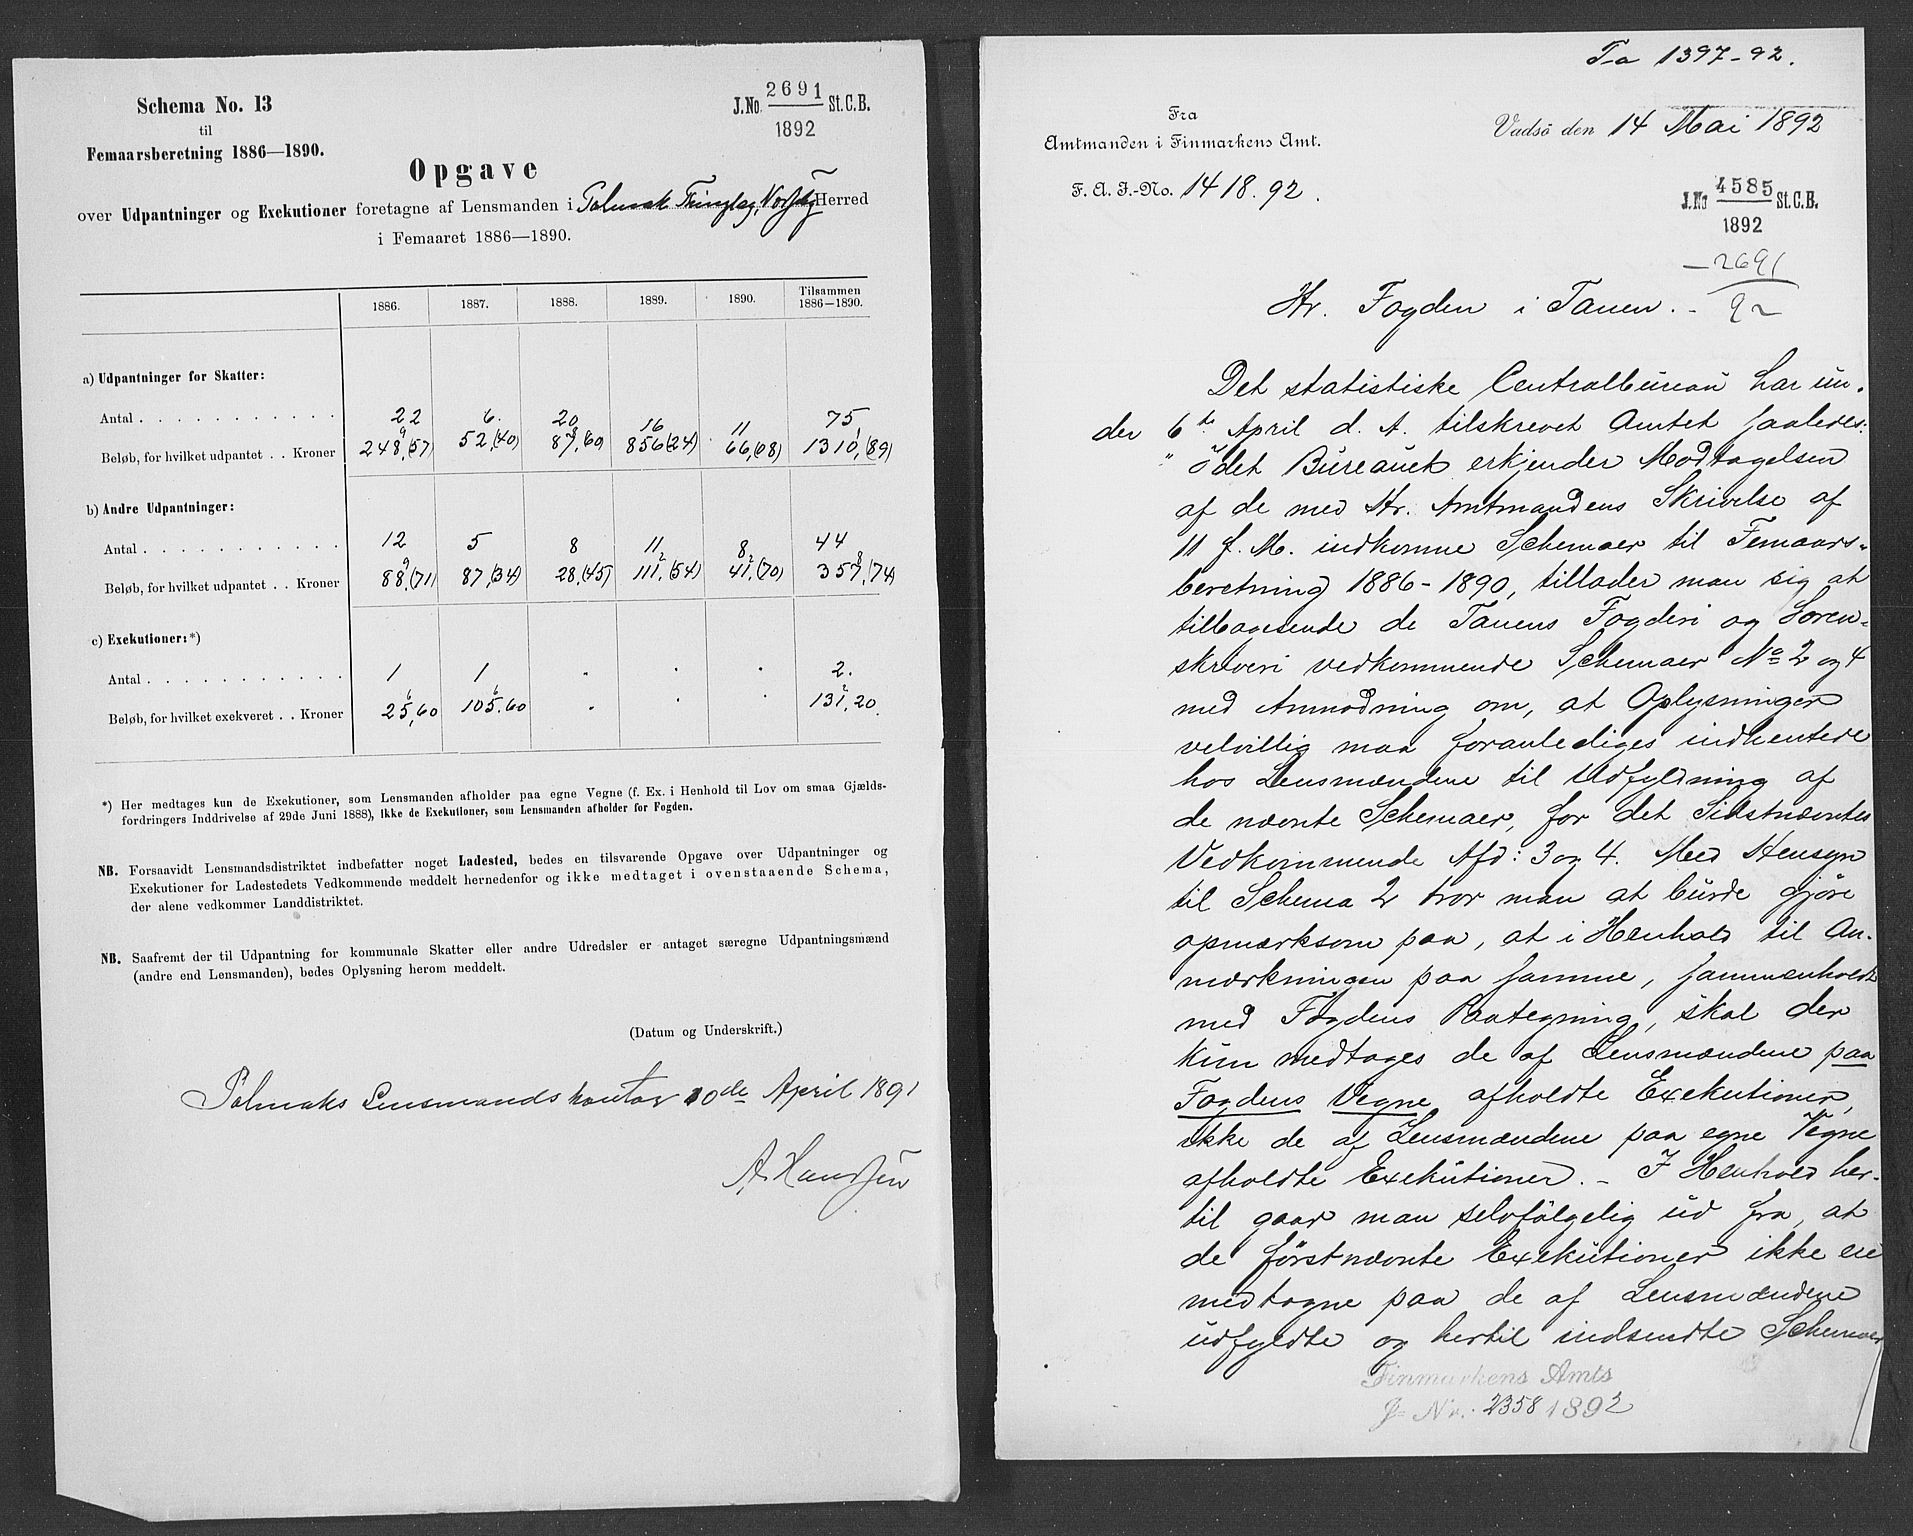 Schema No. 13
til
Femaarsberetning 1886—1890.
J.No. 2691 St.C.B.
1892
Opgave
over Udpantninger og Exekutioner foretagne af Lensmanden i Polmak Thinglag, Herred
i Femaaret 1886—1890.
1886. 1887. 1888. 1889. 1890. Tilsammen 1886—1890.
a) Udpantninger for Skatter:
Antal . . . . . . . . . . . . 22 6. 20 16 11 75
Beløb, for hvilket udpantet . . Kroner 248,(57) 52,(40) 87,60 856(24) 66,(08) 1310,(89)
b) Andre Udpantninger:
Antal . . . . . . . . . . . . 12 5 8 11 8 44
Beløb, for hvilket udpantet . . Kroner 88,(71) 87,(34) 28,(45) 111,(54) 41,(70) 357,(74)
c) Exekutioner:*)
Antal . . . . . . . . . . . . 1 1 . . . 2.
Beløb, for hvilket exekveret . . Kroner 25,60 105.60 . . . 131,20
*) Her medtages kun de Exekutioner, som Lensmanden afholder paa egne Vegne (f. Ex. i Henhold til Lov om smaa Gjælds-
fordringers Inddrivelse af 29de Juni 1888), ikke de Exekutioner, som Lensmanden afholder for Fogden.
NB. Forsaavidt Lensmandsdistriktet indbefatter noget Ladested, bedes en tilsvarende Opgave over Udpantninger og
Exekutioner for Ladestedets Vedkommende meddelt hernedenfor og ikke medtaget i ovenstaaende Schema,
der alene vedkommer Landdistriktet.
NB. Saafremt der til Udpantning for kommunale Skatter eller andre Udredsler er antaget særegne Udpantningsmænd
(andre end Lensmanden), bedes Oplysning herom meddelt.
(Datum og Underskrift.)
Polmaks Lensmandskontor 10de April 1891
A. Hanssen
Ta 1397-92.
Fra
Amtmanden i Finmarkens Amt.
Vadsö den 14 Mai 1892
F. A. J.-No. 1418.92.
J.No 4585 St.C.B.
1892
2691
92
Hr. Fogden i Tanen.
Det statistiske Centralbureau har un-
der 6te April d. A. tilskrevet Amtet saaledes:
"Idet Bureauet erkjender Modtagelsen
af de med Hr. Amtmandens Skrivelse af
11 f. M. indkomne Schemaer til Femaars-
beretning 1886-1890, tillader man sig at
tilbagesende de Tanens Fogderi og Soren-
skriveri vedkommende Schemaer No 2 og 4
med Anmodning om, at Oplysninger
velvillig maa foranlediges indhentede
hos Lensmændene til Udfyldning af
de nævnte Schemaer, for det Sidstnævntes
Vedkommende Afd: 3 og 4. Med Hensyn
til Schema 2 tror man at burde gjøre
opmærksom paa, at i Henhold til An-
mærkningen paa samme, sammenholdt
med Fogdens Paategning, skal der
kun medtages de af Lensmændene paa
Fogdens Vegne afholdte Exekutioner,
ikke de af Lensmændene paa egne Vegne
afholdte Exekutioner. - I Henhold her-
til gaar man selvfölgelig ud fra, at
de förstnævnte Exekutioner ikke ere
medtagne paa de af Lensmændene
udfyldte og hertil indsendte Schemaer
Finmarkens Amts
J- Nr. 2358 1892